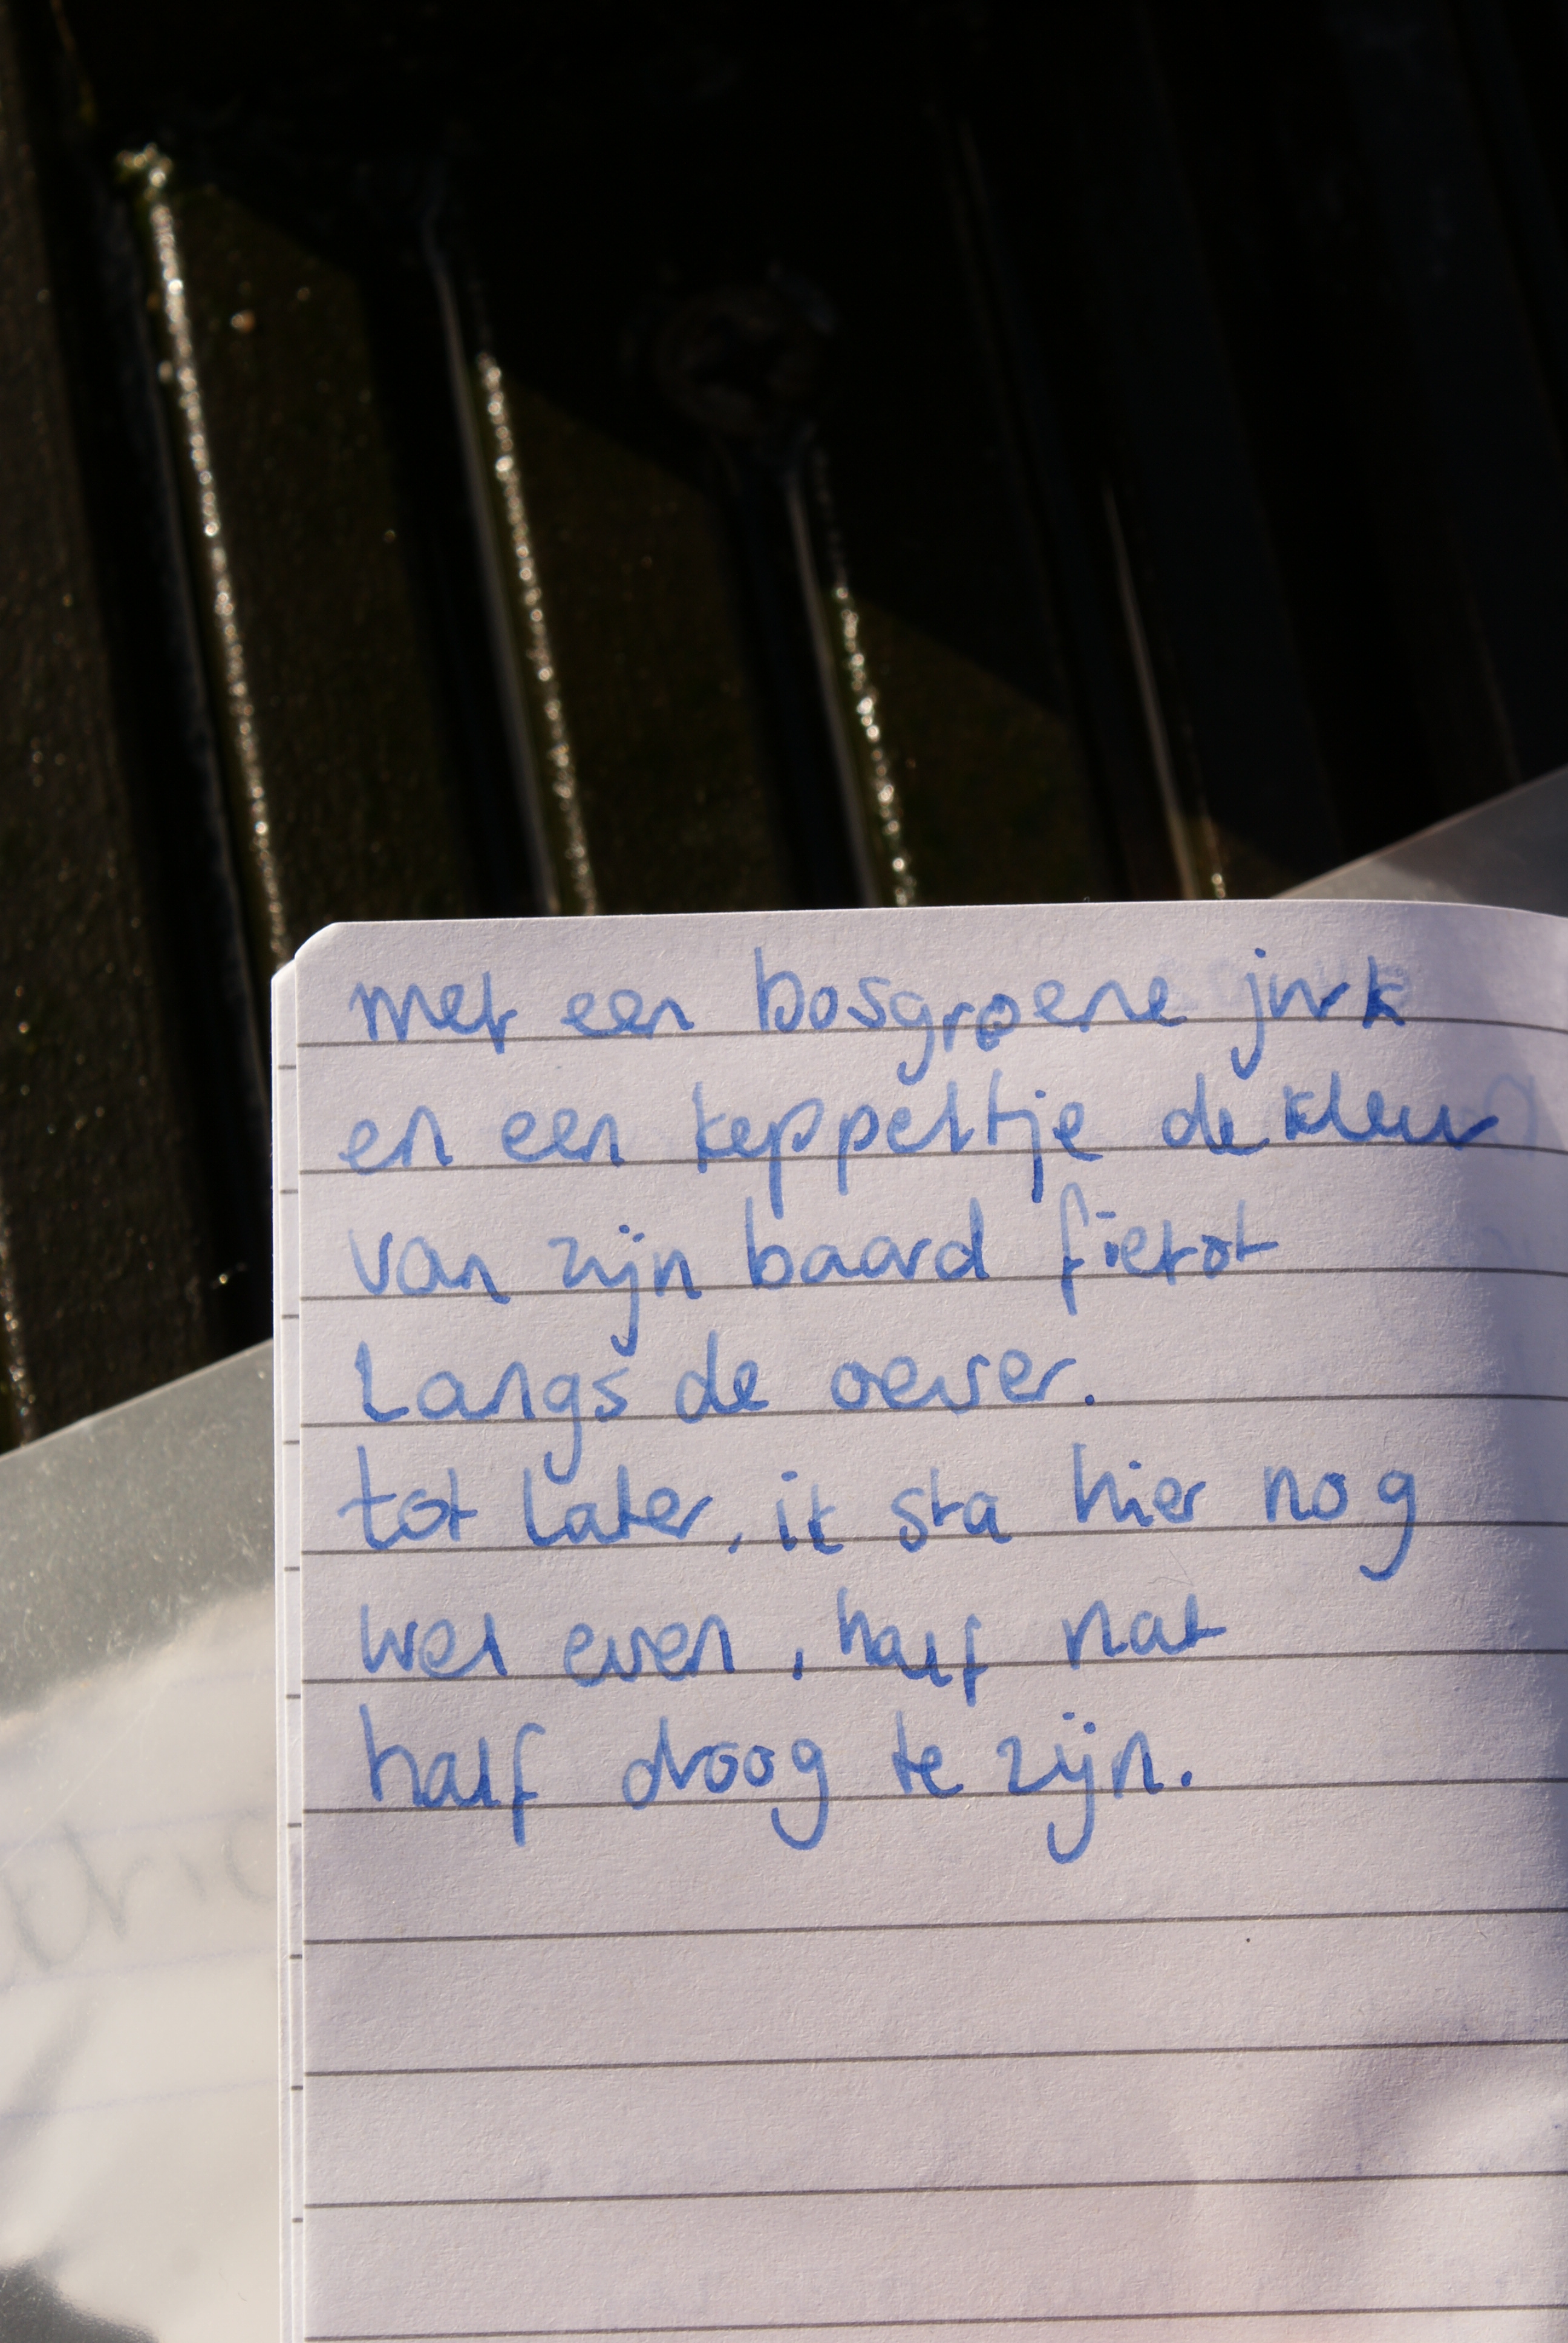 met een bosgroene jurk
en een keppeltje de kleur
van zijn baard fietst
Langs de oever.
tot later, ik sta hier nog
wel even, half nat
half droog te zijn.